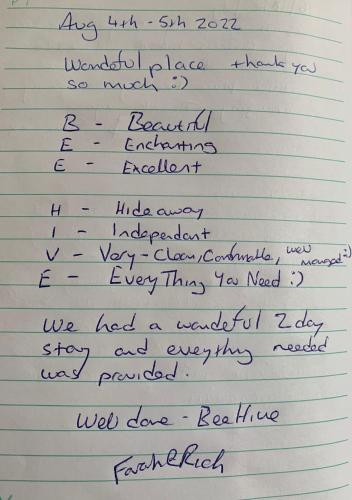 Aug 4th - 5th 2022
Wondeful place thank you
so much :)
B - Beautiful
E - Enchanting
E - Excellent
H - Hideaway
I - Independent
V - Very - Clean, Comfortable, well managed :)
E - EveryThing You Need :)
We had a wondeful 2 day
stay and eveything needed
was provided.
Well done - BeeHive
Farah & Rich